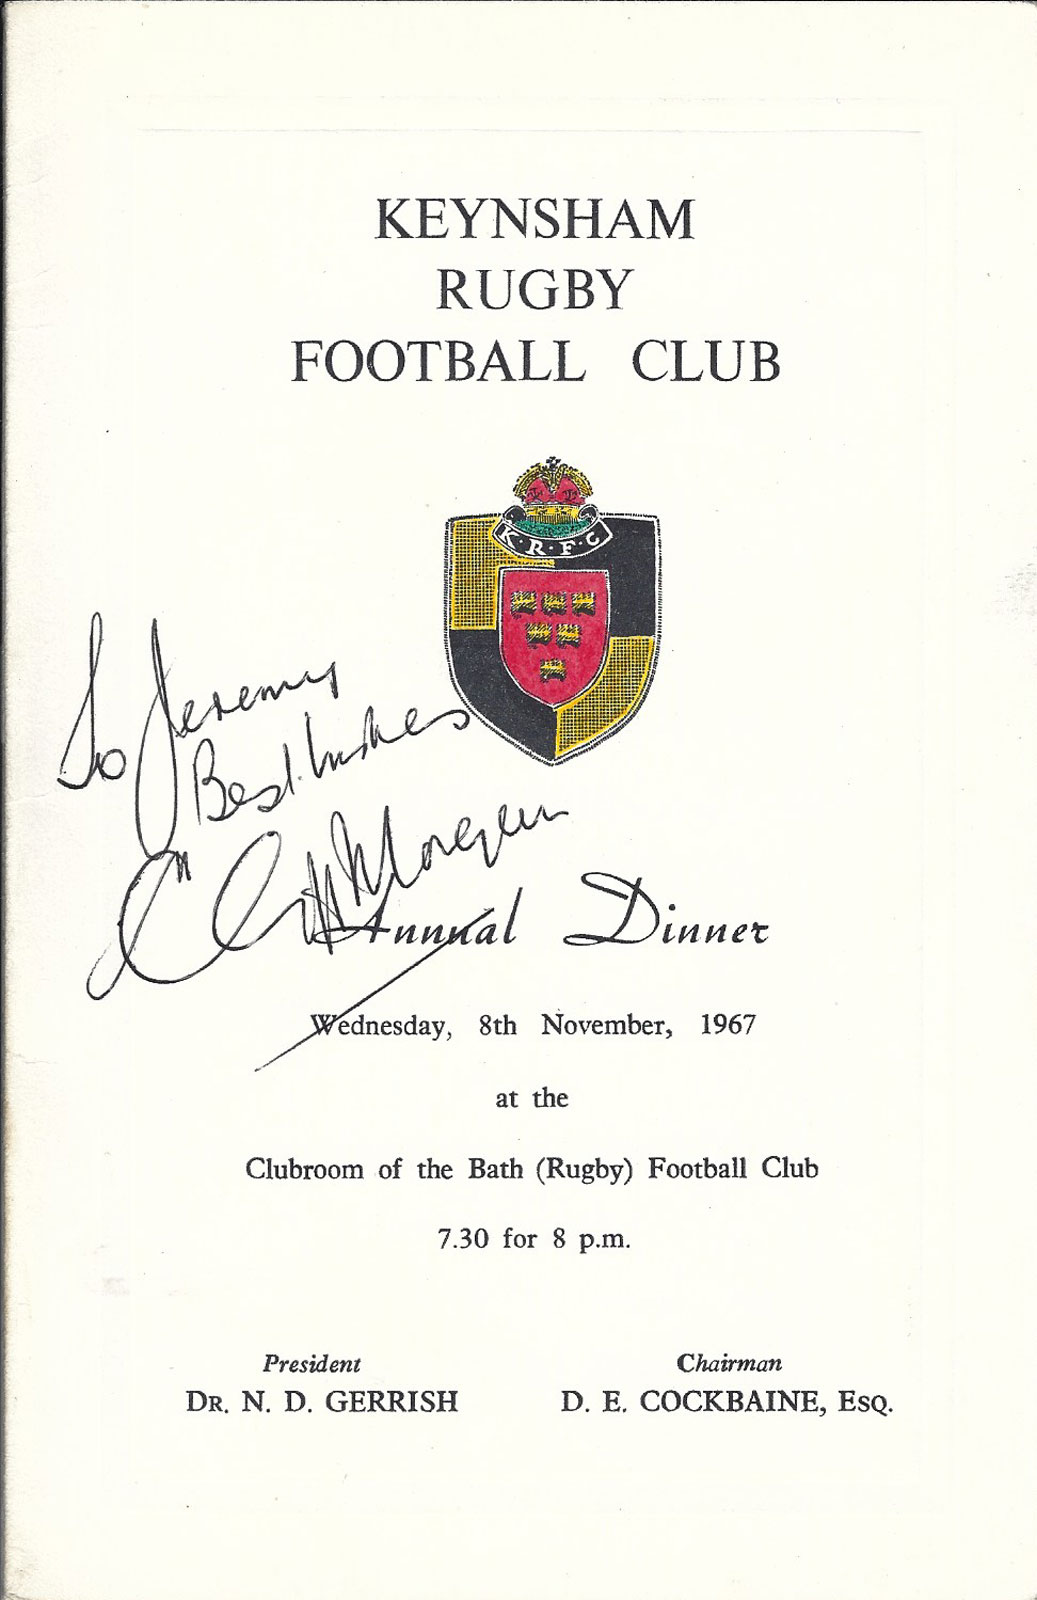 KEYNSHAM
RUGBY
FOOTBALL CLUB
K·R·F·C
To Jeremy
Best Wishes
Morgan
Annual Dinner
Wednesday, 8th November, 1967
at the
Clubroom of the Bath (Rugby) Football Club
7.30 for 8 p.m.
President
DR. N. D. GERRISH
Chairman
D. E. COCKBAINE, ESQ.